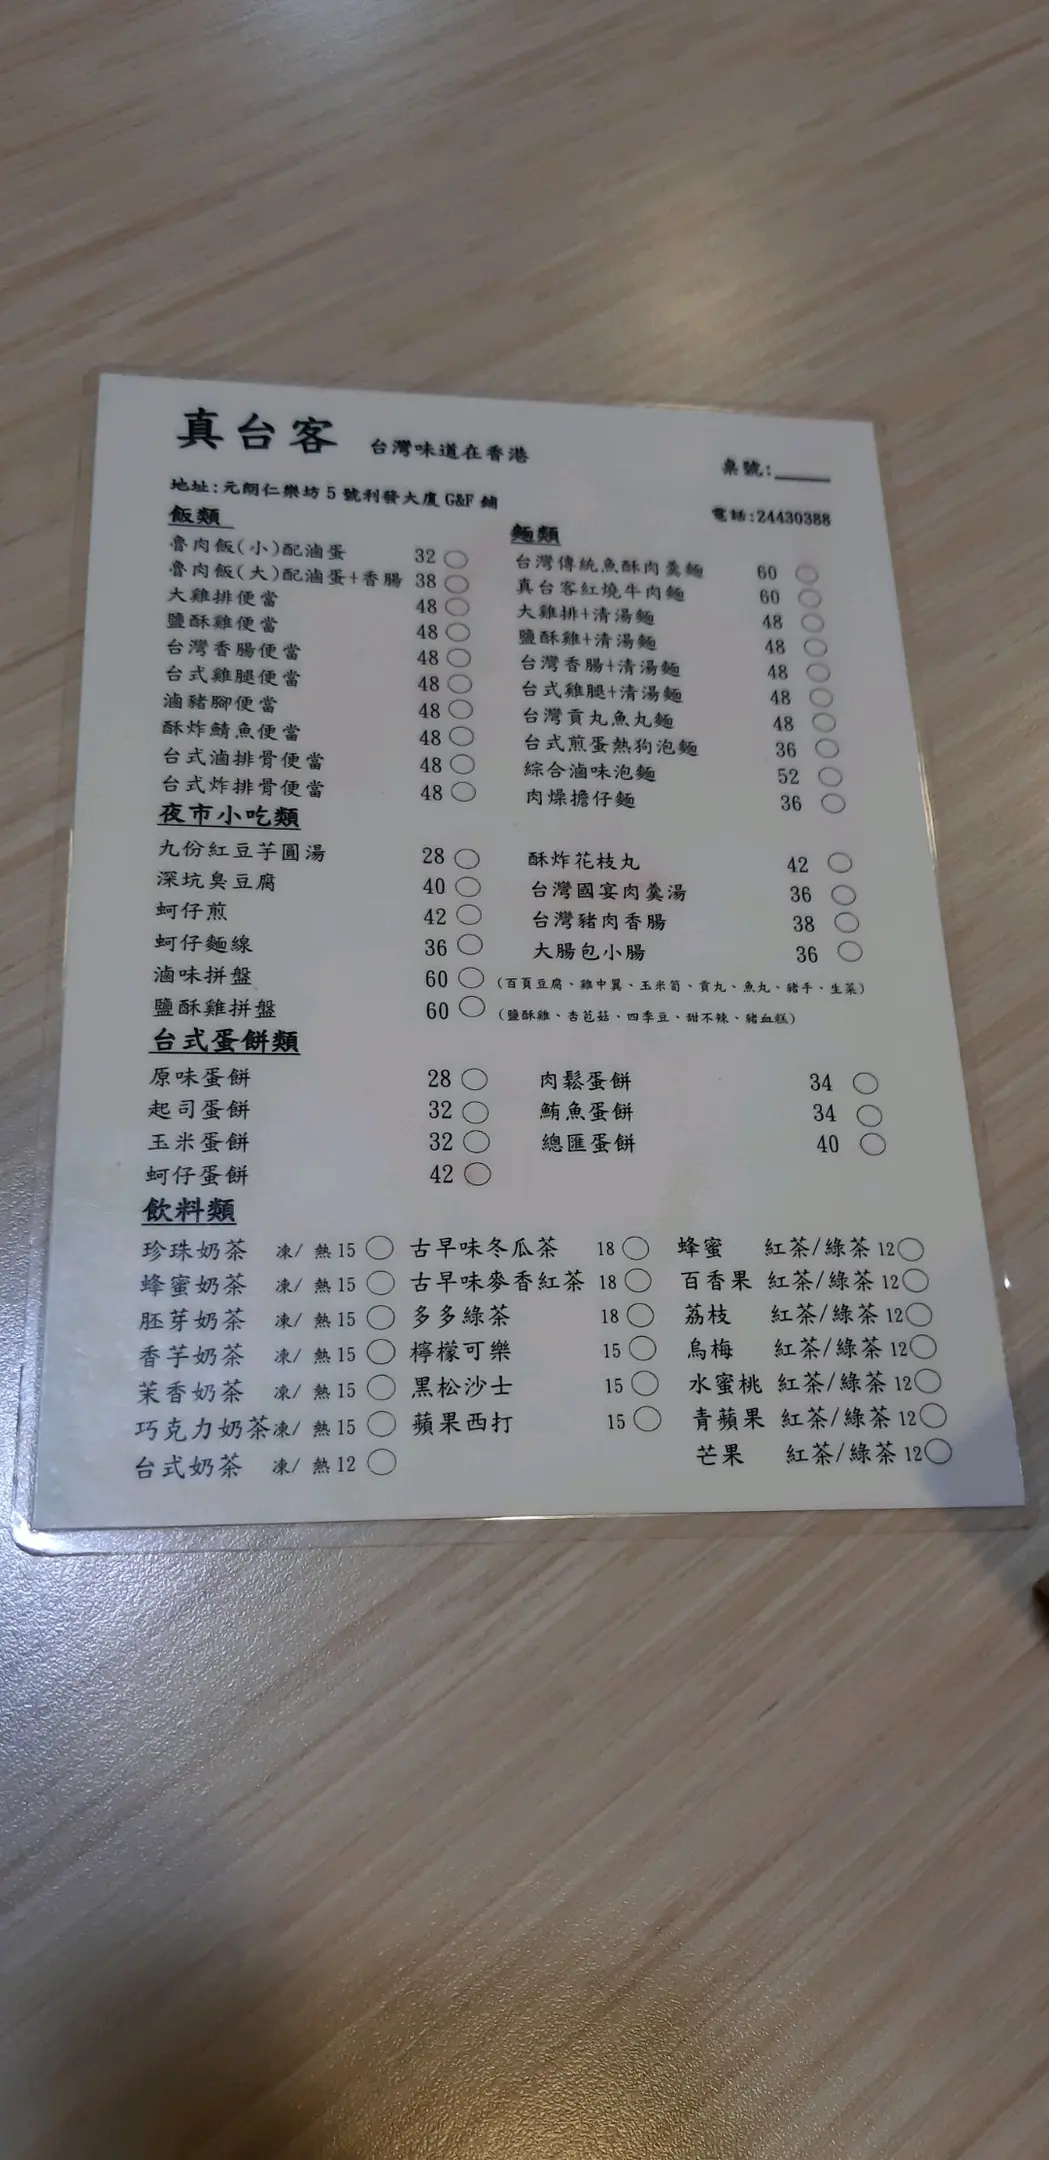 真台客 台灣味道在香港 桌號:
地址:元朗仁樂坊5號利發大廈G&F鋪 電話:24430388
飯類 麵類
魯肉飯(小)配滷蛋 32 台灣傳統魚酥肉羹麵 60
魯肉飯(大)配滷蛋+香腸 38 真台客紅燒牛肉麵 60
大雞排便當 48 大雞排+清湯麵 48
鹽酥雞便當 48 鹽酥雞+清湯麵 48
台灣香腸便當 48 台灣香腸+清湯麵 48
台式雞腿便當 48 台式雞腿+清湯麵 48
滷豬腳便當 48 台灣貢丸魚丸麵 48
酥炸鯖魚便當 48 台式煎蛋熱狗泡麵 36
台式滷排骨便當 48 綜合滷味泡麵 52
台式炸排骨便當 48 肉燥擔仔麵 36
夜市小吃類
九份紅豆芋圓湯 28 酥炸花枝丸 42
深坑臭豆腐 40 台灣國宴肉羹湯 36
蚵仔煎 42 台灣豬肉香腸 38
蚵仔麵線 36 大腸包小腸 36
滷味拼盤 60 (百頁豆腐、雞中翼、玉米筍、貢丸、魚丸、豬手、生菜)
鹽酥雞拼盤 60 (鹽酥雞、杏苞菇、四季豆、甜不辣、豬血糕)
台式蛋餅類
原味蛋餅 28 肉鬆蛋餅 34
起司蛋餅 32 鮪魚蛋餅 34
玉米蛋餅 32 總匯蛋餅 40
蚵仔蛋餅 42
飲料類
珍珠奶茶 凍/ 熱 15 古早味冬瓜茶 18 蜂蜜 紅茶/綠茶 12
蜂蜜奶茶 凍/ 熱 15 古早味麥香紅茶 18 百香果 紅茶/綠茶 12
胚芽奶茶 凍/ 熱 15 多多綠茶 18 荔枝 紅茶/綠茶 12
香芋奶茶 凍/ 熱 15 檸檬可樂 15 烏梅 紅茶/綠茶 12
茉香奶茶 凍/ 熱 15 黑松沙士 15 水蜜桃 紅茶/綠茶 12
巧克力奶茶 凍/ 熱 15 蘋果西打 15 青蘋果 紅茶/綠茶 12
台式奶茶 凍/ 熱 12 芒果 紅茶/綠茶 12